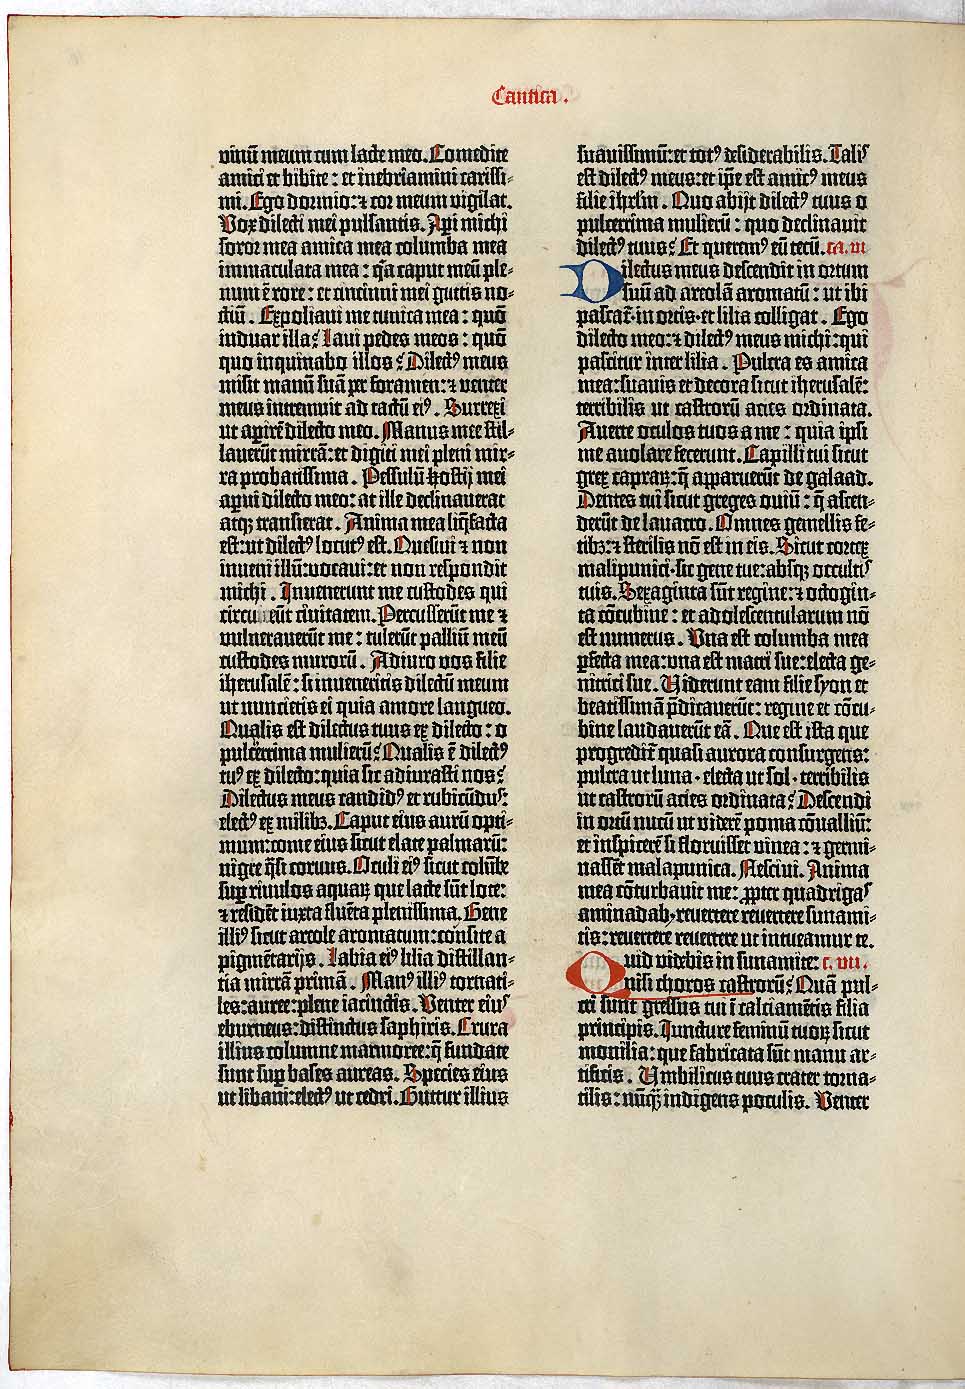 Cantica.
vinū meum cum lacte meo. Comedite
amici et bibite: et inebriamini carissi-
mi. Ego dormio: ⁊ cor meum vigilat.
Vox dilecti mei pulsantis. Aperi michi
soror mea amica mea columba mea
immaculata mea: q̄a caput meū ple-
num ē rore: et cincinni mei guttis no-
ctiū. Expoliavi me tunica mea: quō
induar illa? Lavi pedes meos: quō
quo inquinabo illos? Dilectꝰ meus
misit manū suā per foramen: ⁊ venter
meus intremuit ad tactū eiꝰ. Surrexi
ut aperirē dilecto meo. Manus mee stil-
laverūt mirrā: et digiti mei pleni mir-
ra probatissima. Pessulū hostij mei
aperui dilecto meo: at ille declinaverat
atqꝫ transierat. Anima mea liq̄facta
est: ut dilectꝰ locutꝰ est. Quesivi ⁊ non
inveni illū: vocavi: et non respondit
michi. Invenerunt me custodes qui
circueūt civitatem. Percusserūt me ⁊
vulneraverūt me: tulerūt palliū meū
custodes murorū. Adiuro vos filie
iherusalē: si inveneritis dilectū meum
ut nuncietis ei quia amore langueo.
Qualis est dilectus tuus ex dilecto: o
pulcerrima mulierū? Qualis ē dilectꝰ
tuꝰ ex dilecto: quia sic adiurasti nos?
Dilectus meus candidꝰ et rubicūduꝰ:
electꝰ ex milibꝫ. Caput eius aurū opti-
mum: come eius sicut elate palmarū:
nigre q̄si corvus. Oculi eiꝰ sicut colūbe
suꝑ rivulos aquaꝝ que lacte sūt lote:
⁊ residēt iuxta fluēta plenissima. Gene
illiꝰ sicut areole aromatum: consite a
pigmētarijs. Labia eiꝰ lilia distillan-
tia mirrā primā. Manꝰ illiꝰ tornati-
les: auree: plene iacinctis. Venter eiuꝰ
eburneus: distinctus saphiris. Crura
illius columne marmoree: q̄ fundate
sunt suꝑ bases aureas. Species eius
ut libani: electꝰ ut cedri. Guttur illius
suavissimū: et totꝰ desiderabilis. Taliꝰ
est dilectꝰ meus: et ip̄e est amicꝰ meus
filie ihrlm̄. Quo abijt dilectꝰ tuus o
pulcerrima mulierū: quo declinavit
dilectꝰ tuus? Et queremꝰ eū tecū. ca. vi
Dilectus meus descendit in ortum
suū ad areolā aromatū: ut ibi
pascat̄ in ortis · et lilia colligat. Ego
dilecto meo: ⁊ dilectꝰ meus michi: qui
pascitur inter lilia. Pulcra es amica
mea: suavis et decora sicut iherusalē:
terribilis ut castrorū acies ordinata.
Averte oculos tuos a me: quia ipsi
me avolare fecerunt. Capilli tui sicut
grex capraꝝ: q̄ apparuerūt de galaad.
Dentes tui sicut greges oviū: q̄ ascen-
derūt de lavacro. Omnes gemellis fe-
tibꝫ: ⁊ sterilis nō est in eis. Sicut cortex
malipunici · sic gene tue: absqꝫ occultiꝰ
tuis. Sexaginta sūt regine: ⁊ octogin-
ta cōcubine: et adolescentularum nō
est numerus. Una est columba mea
ꝑfecta mea: una est matri sue: electa ge-
nitrici sue. Viderunt eam filie syon et
beatissimā p̄dicaverūt: regine et cōcu-
bine laudaverūt eā. Que est ista que
progredit̄ quasi aurora consurgens:
pulcra ut luna · electa ut sol · terribilis
ut castrorū acies ordinata? Descendi
in ortū nucū ut viderē poma cōvalliū:
et inspicerē si floruisset vinea: ⁊ germi-
nassēt malapunica. Nescivi. Anima
mea cōturbavit me: ꝓpter quadrigaꝰ
aminadab, revertere revertere sunami-
tis: revertere revertere ut intueamur te.
Quid videbis in sunamite: c. vii.
nisi choros castrorū? Quā pul-
cri sunt gressus tui ī calciamētis filia
principis. Iuncture feminū tuoꝝ sicut
monilia: que fabricata sūt manu ar-
tificis. Umbilicus tuus crater torna-
tilis: nūqꝫ indigens poculis. Venter